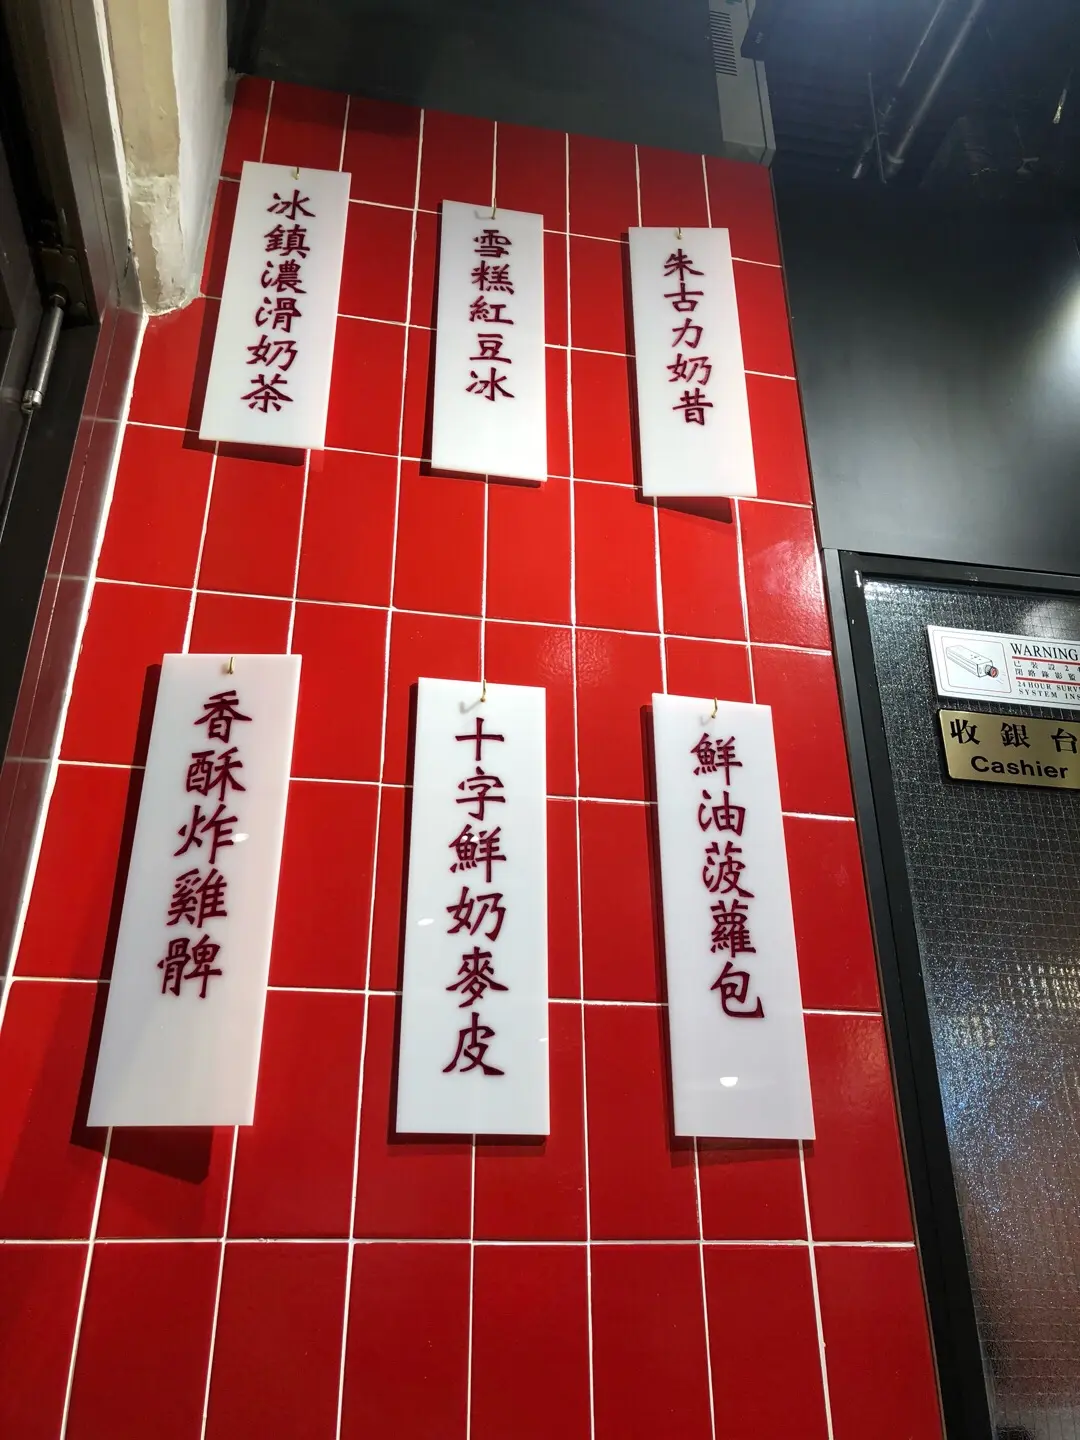 冰鎮濃滑奶茶
雪糕紅豆冰
朱古力奶昔
香酥炸雞髀
十字鮮奶麥皮
鮮油菠蘿包
WARNING
已裝設2
閉路錄影監
24 HOUR SURV
SYSTEM INS
收銀台
Cashier